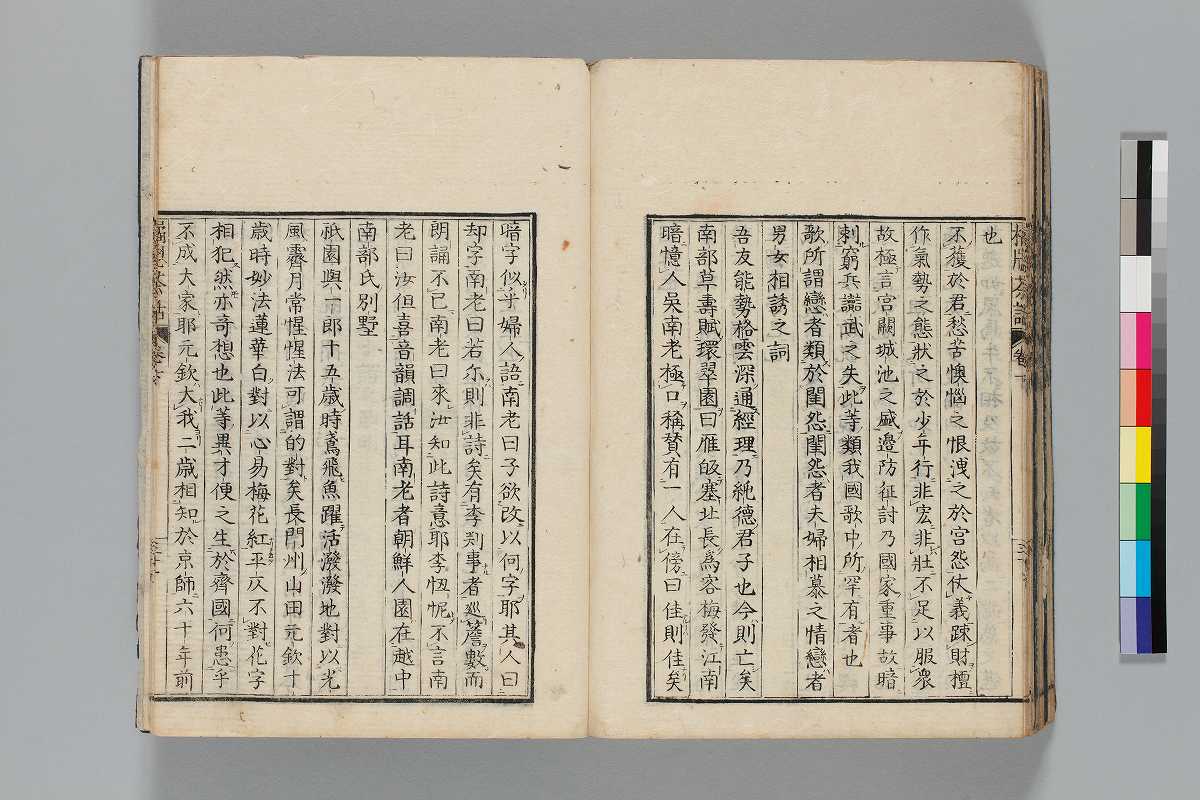 也
不獲於君愁苦懊惱之恨洩之於宮怨仗義踈財檀
作氣勢之態狀之於少年行非宏非壯不足以服衆
故極言宮闕城池之盛邊防征討乃國家重事故暗
刺窮兵讟武之失此等類我國歌中所罕有者也
歌所謂戀者類於閨怨閨怨者夫婦相慕之情戀者
男女相誘之詞
吾友能勢格雲深通經理乃純德君子也今則亡矣
南部草壽賦環翠園曰雁皈塞北長爲客梅發江南
暗憶人吳南老極口稱賛有一人在傍曰佳則佳矣
暗字似乎婦人語南老曰子欲改以何字耶其人曰
却字南老曰若尓則非詩矣有李判事者巡簷數而
朗誦不已南老曰來汝知此詩意耶李忸怩不言南
老曰汝但喜音韻調話耳南老者朝鮮人園在越中
南部氏別墅
祇園與一郎十五歳時鳶飛魚躍活潑潑地對以光
風霽月常惺惺法可謂的對矣長門州山田元欽十
歳時妙法蓮華白對以心易梅花紅平仄不對花字
相犯然亦奇想也此等異才便之生於齊國何患乎
不成大家耶元欽大我二歳相知於京師六十年前